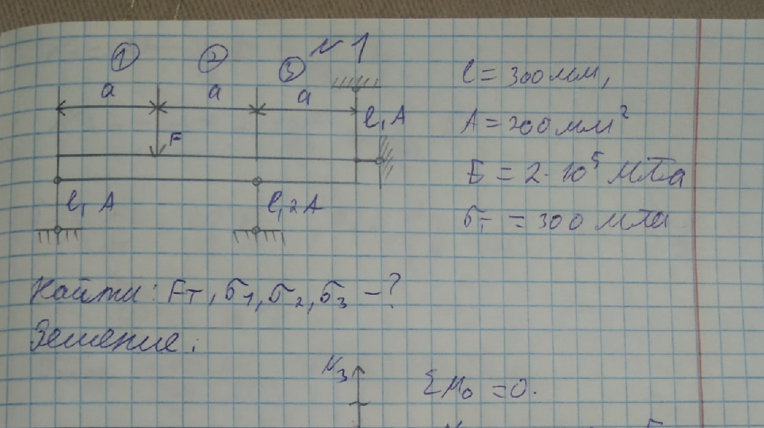 № 1
① ② ③
a a a
F
l, A
l, A l, 2A
l = 300 мм,
A = 200 мм²
E = 2·10⁵ МПа
σт = 300 мПа
Найти: Fт, σ1, σ2, σ3 – ?
Решение:
N3
ΣM₀ = 0.